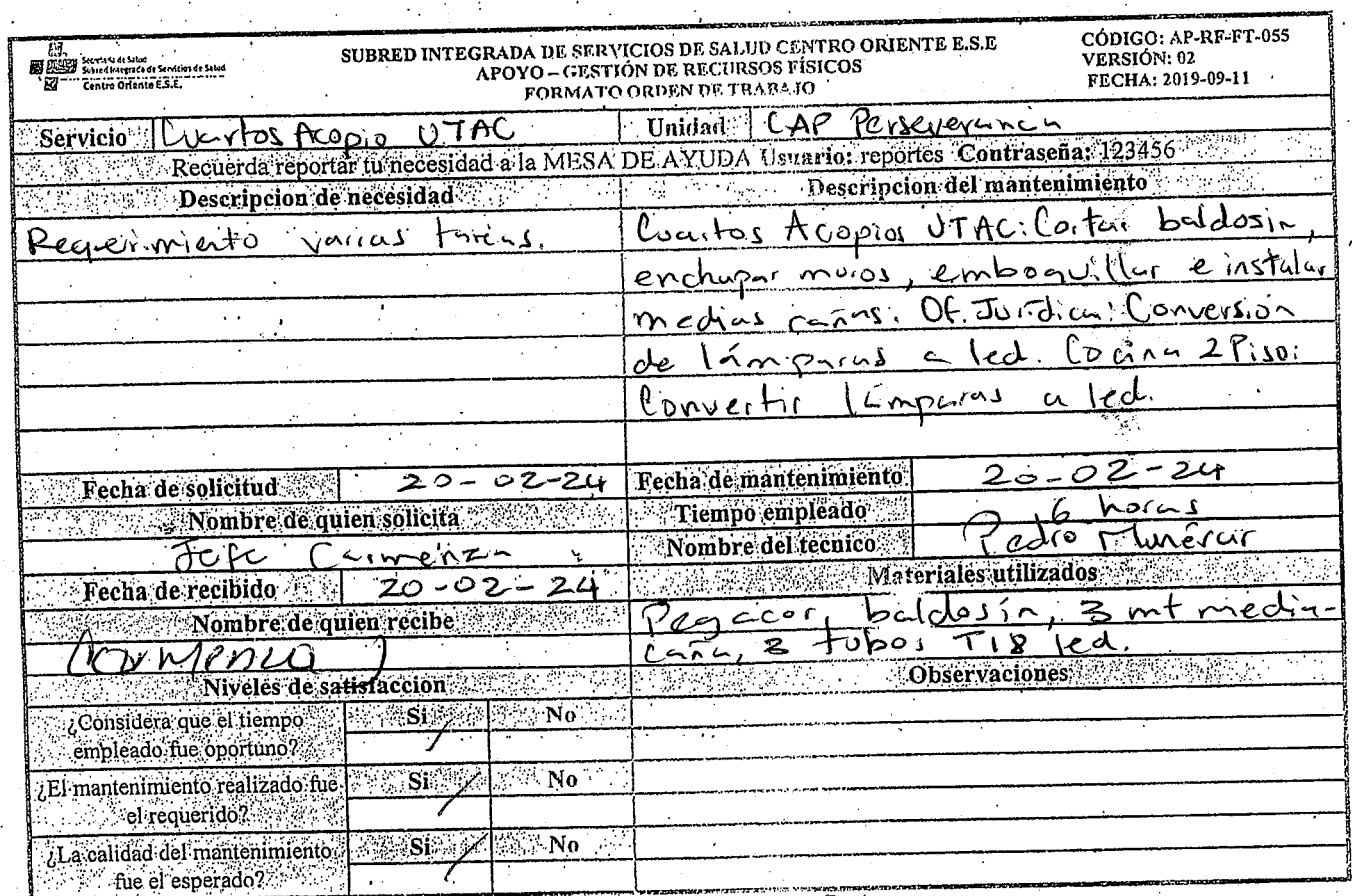 Secretaría de Salud
Subred Integrada de Servicios de Salud
Centro Oriente E.S.E.
SUBRED INTEGRADA DE SERVICIOS DE SALUD CENTRO ORIENTE E.S.E
APOYO – GESTIÓN DE RECURSOS FÍSICOS
FORMATO ORDEN DE TRABAJO
CÓDIGO: AP-RF-FT-055
VERSIÓN: 02
FECHA: 2019-09-11
Servicio Cuartos Acopio UTAC Unidad CAP Perseverancia
Recuerda reportar tu necesidad a la MESA DE AYUDA Usuario: reportes Contraseña: 123456
Descripcion de necesidad
Requerimiento varias tareas.
Descripcion del mantenimiento
Cuartos Acopios UTAC: Cortar baldosin,
enchapar muros, emboquillar e instalar
medias cañas. Of. Jurídica: Conversión
de lámparas a led. Cocina 2 Piso:
Convertir lámparas a led.
Fecha de solicitud 20-02-24
Nombre de quien solicita
Jefe Carmenza
Fecha de recibido 20-02-24
Nombre de quien recibe
Carmenza
Fecha de mantenimiento 20-02-24
Tiempo empleado 6 horas
Nombre del tecnico Pedro Munévar
Materiales utilizados
Pegacor, baldosín, 3 mt media-
caña, 3 tubos T18 led.
Niveles de satisfaccion
¿Considera que el tiempo
empleado fue oportuno?
Si No
¿El mantenimiento realizado fue
el requerido?
Si No
¿La calidad del mantenimiento
fue el esperado?
Si No
Observaciones